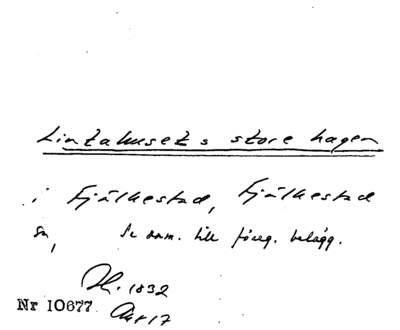 Lintahusets store hagen
i Fjälkestad, Fjälkestad
sn, Se anm. till föreg. belägg.
H. 1832
Akt 17
Nr 10677